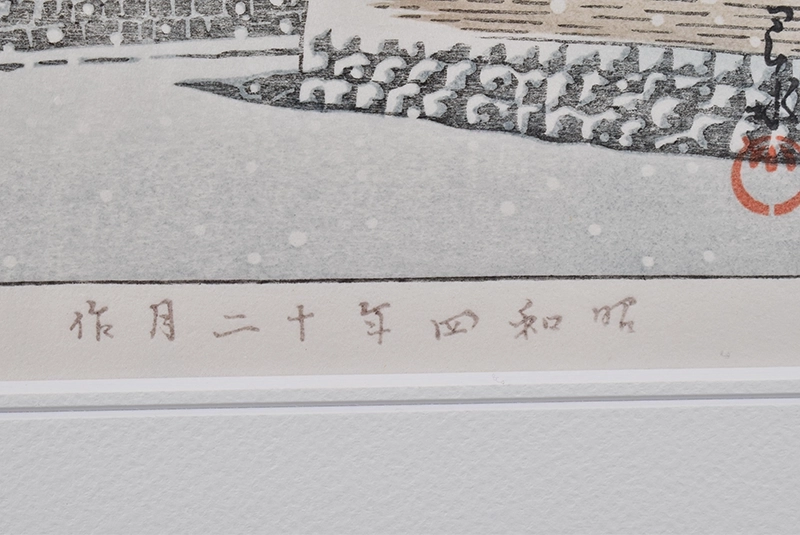 昭和四年十二月作
巴水